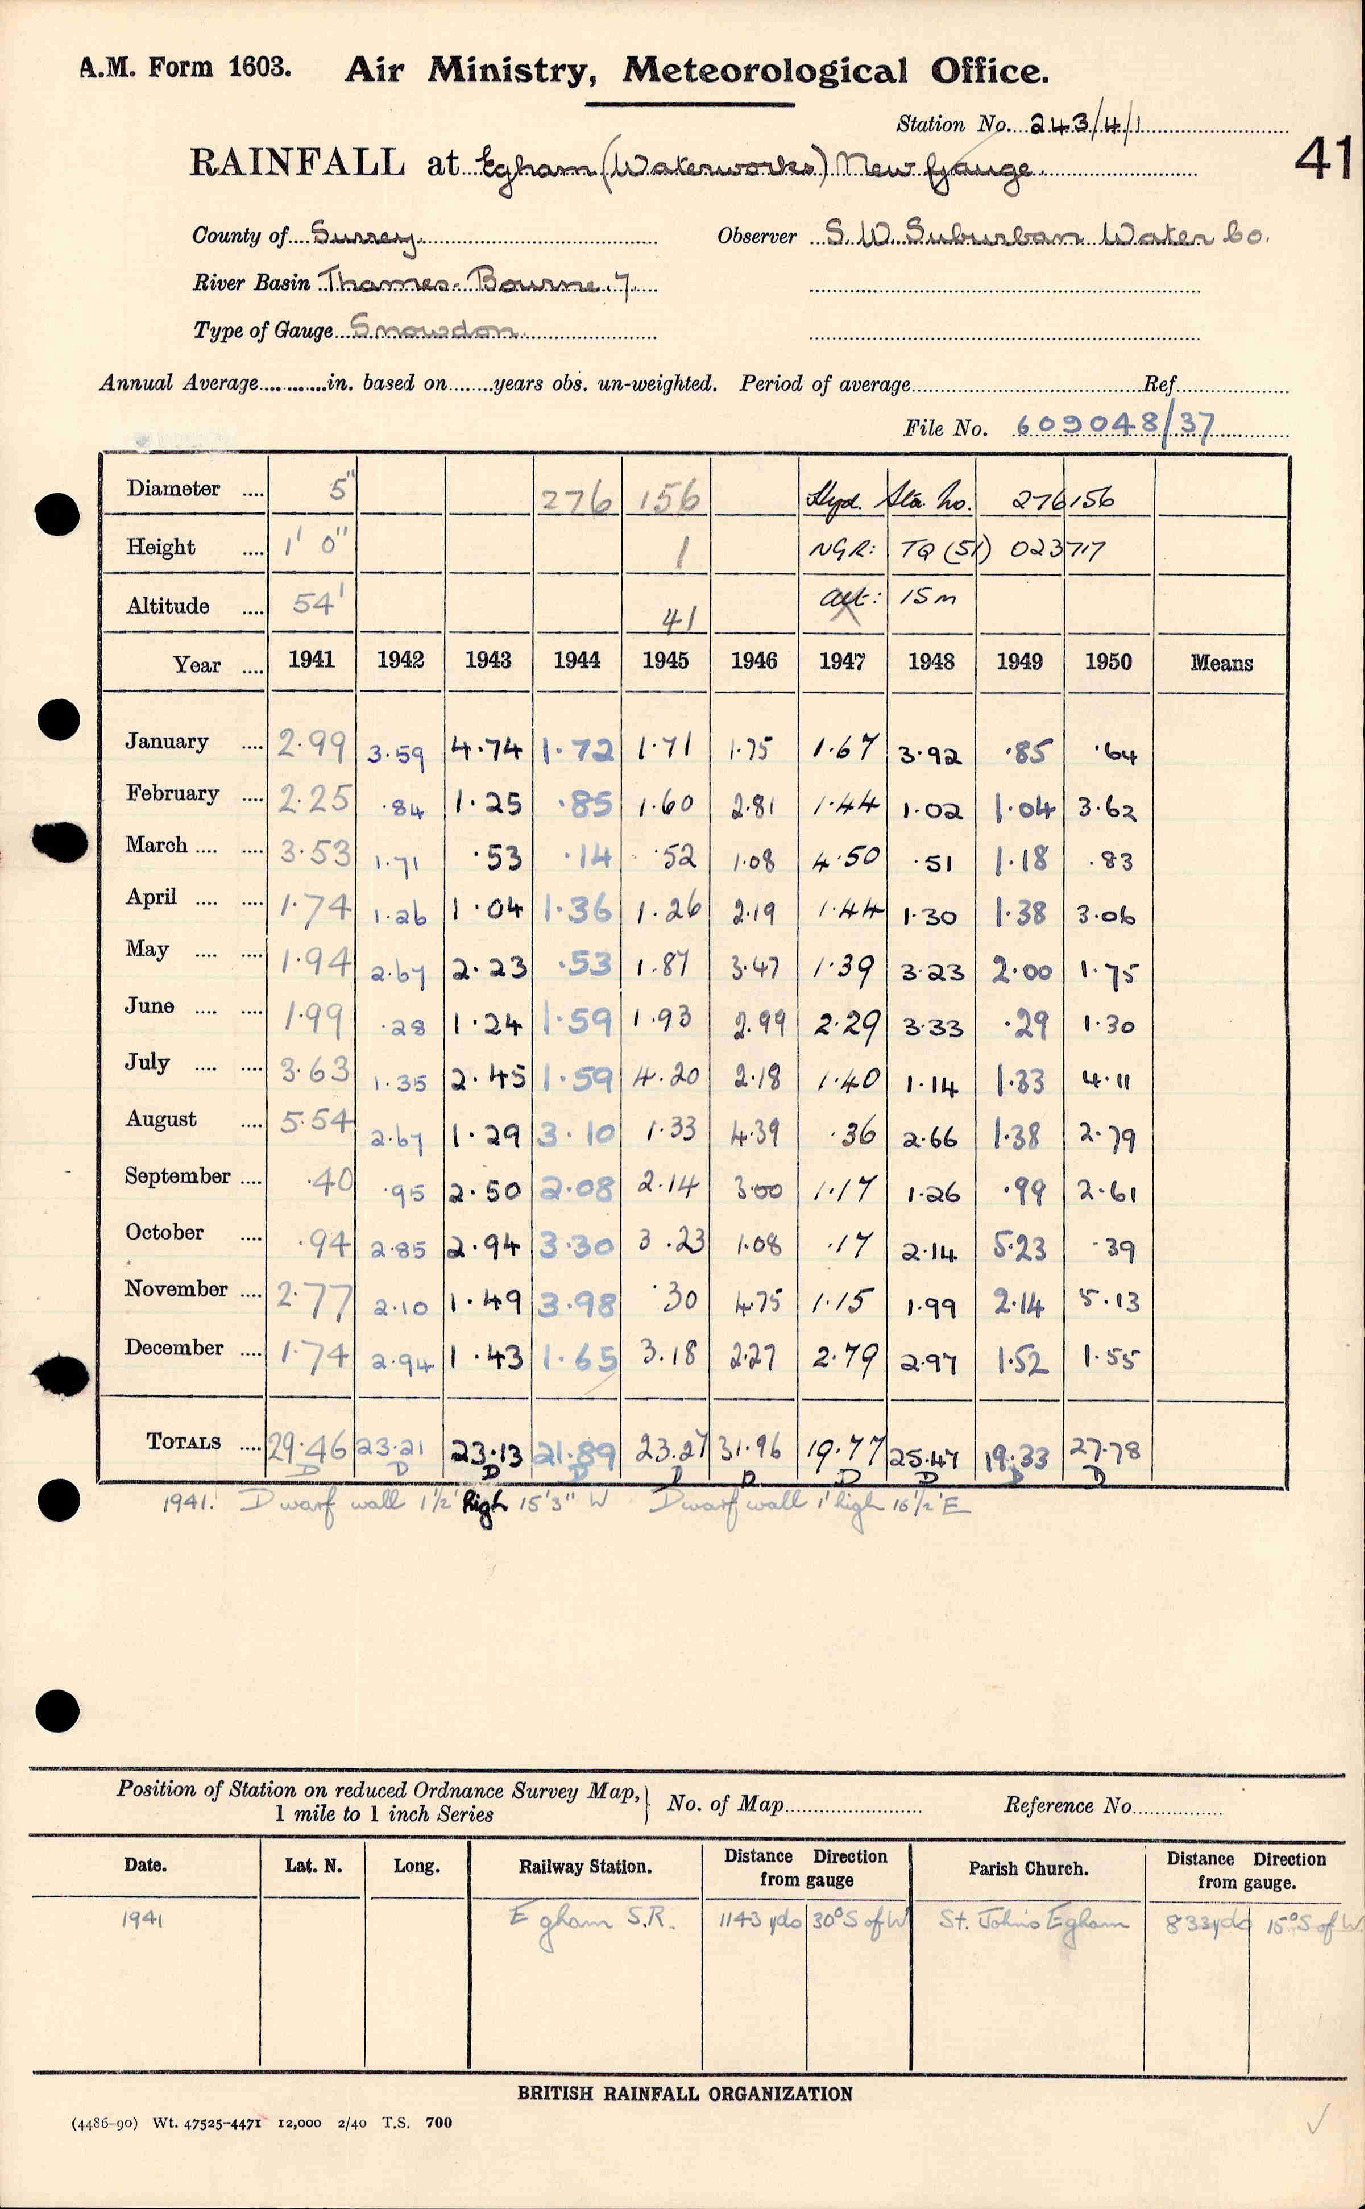 A.M. Form 1603. Air Ministry, Meteorological Office.
Station No. 243/4/1
41
RAINFALL at Egham (Waterworks) New Gauge
County of Surrey Observer S.W. Suburban Water Co.
River Basin Thames-Bourne.7.
Type of Gauge Snowdon
Annual Average in. based on years obs. un-weighted. Period of average Ref
File No. 609048/37
Diameter 5" 276 156 Hyd. Sta. No. 276156
Height 1' 0" 1 NGR: TQ (51) 023717
Altitude 54' 41 Alt: 15m
Year 1941 1942 1943 1944 1945 1946 1947 1948 1949 1950 Means
January 2.99 3.59 4.74 1.72 1.71 1.75 1.67 3.92 .85 .64
February 2.25 .84 1.25 .85 1.60 2.81 1.44 1.02 1.04 3.62
March 3.53 1.71 .53 .14 .52 1.08 4.50 .51 1.18 .83
April 1.74 1.26 1.04 1.36 1.26 2.19 1.44 1.30 1.38 3.06
May 1.94 2.67 2.23 .53 1.87 3.47 1.39 3.23 2.00 1.75
June 1.99 .28 1.24 1.59 1.93 2.99 2.29 3.33 .29 1.30
July 3.63 1.35 2.45 1.59 4.20 2.18 1.40 1.14 1.33 4.11
August 5.54 2.67 1.29 3.10 1.33 4.39 .36 2.66 1.38 2.79
September .40 .95 2.50 2.08 2.14 3.00 1.17 1.26 .99 2.61
October .94 2.85 2.94 3.30 3.23 1.08 .17 2.14 5.23 .39
November 2.77 2.10 1.49 3.98 .30 4.75 1.15 1.99 2.14 5.13
December 1.74 2.94 1.43 1.65 3.18 2.27 2.79 2.97 1.52 1.55
TOTALS 29.46 23.21 23.13 21.89 23.27 31.96 19.77 25.47 19.33 27.78
D D D D D D D D D D
1941. Dwarf wall 1½' high 15'3" W Dwarf wall 1' high 16½' E
Position of Station on reduced Ordnance Survey Map, 1 mile to 1 inch Series No. of Map Reference No
Date. Lat. N. Long. Railway Station. Distance Direction from gauge Parish Church. Distance Direction from gauge.
1941 Egham S.R. 1143 yds 30° S of W St. John's Egham 833 yds 15° S of W.
BRITISH RAINFALL ORGANIZATION
(4486-90) Wt. 47525-4471 12,000 2/40 T.S. 700